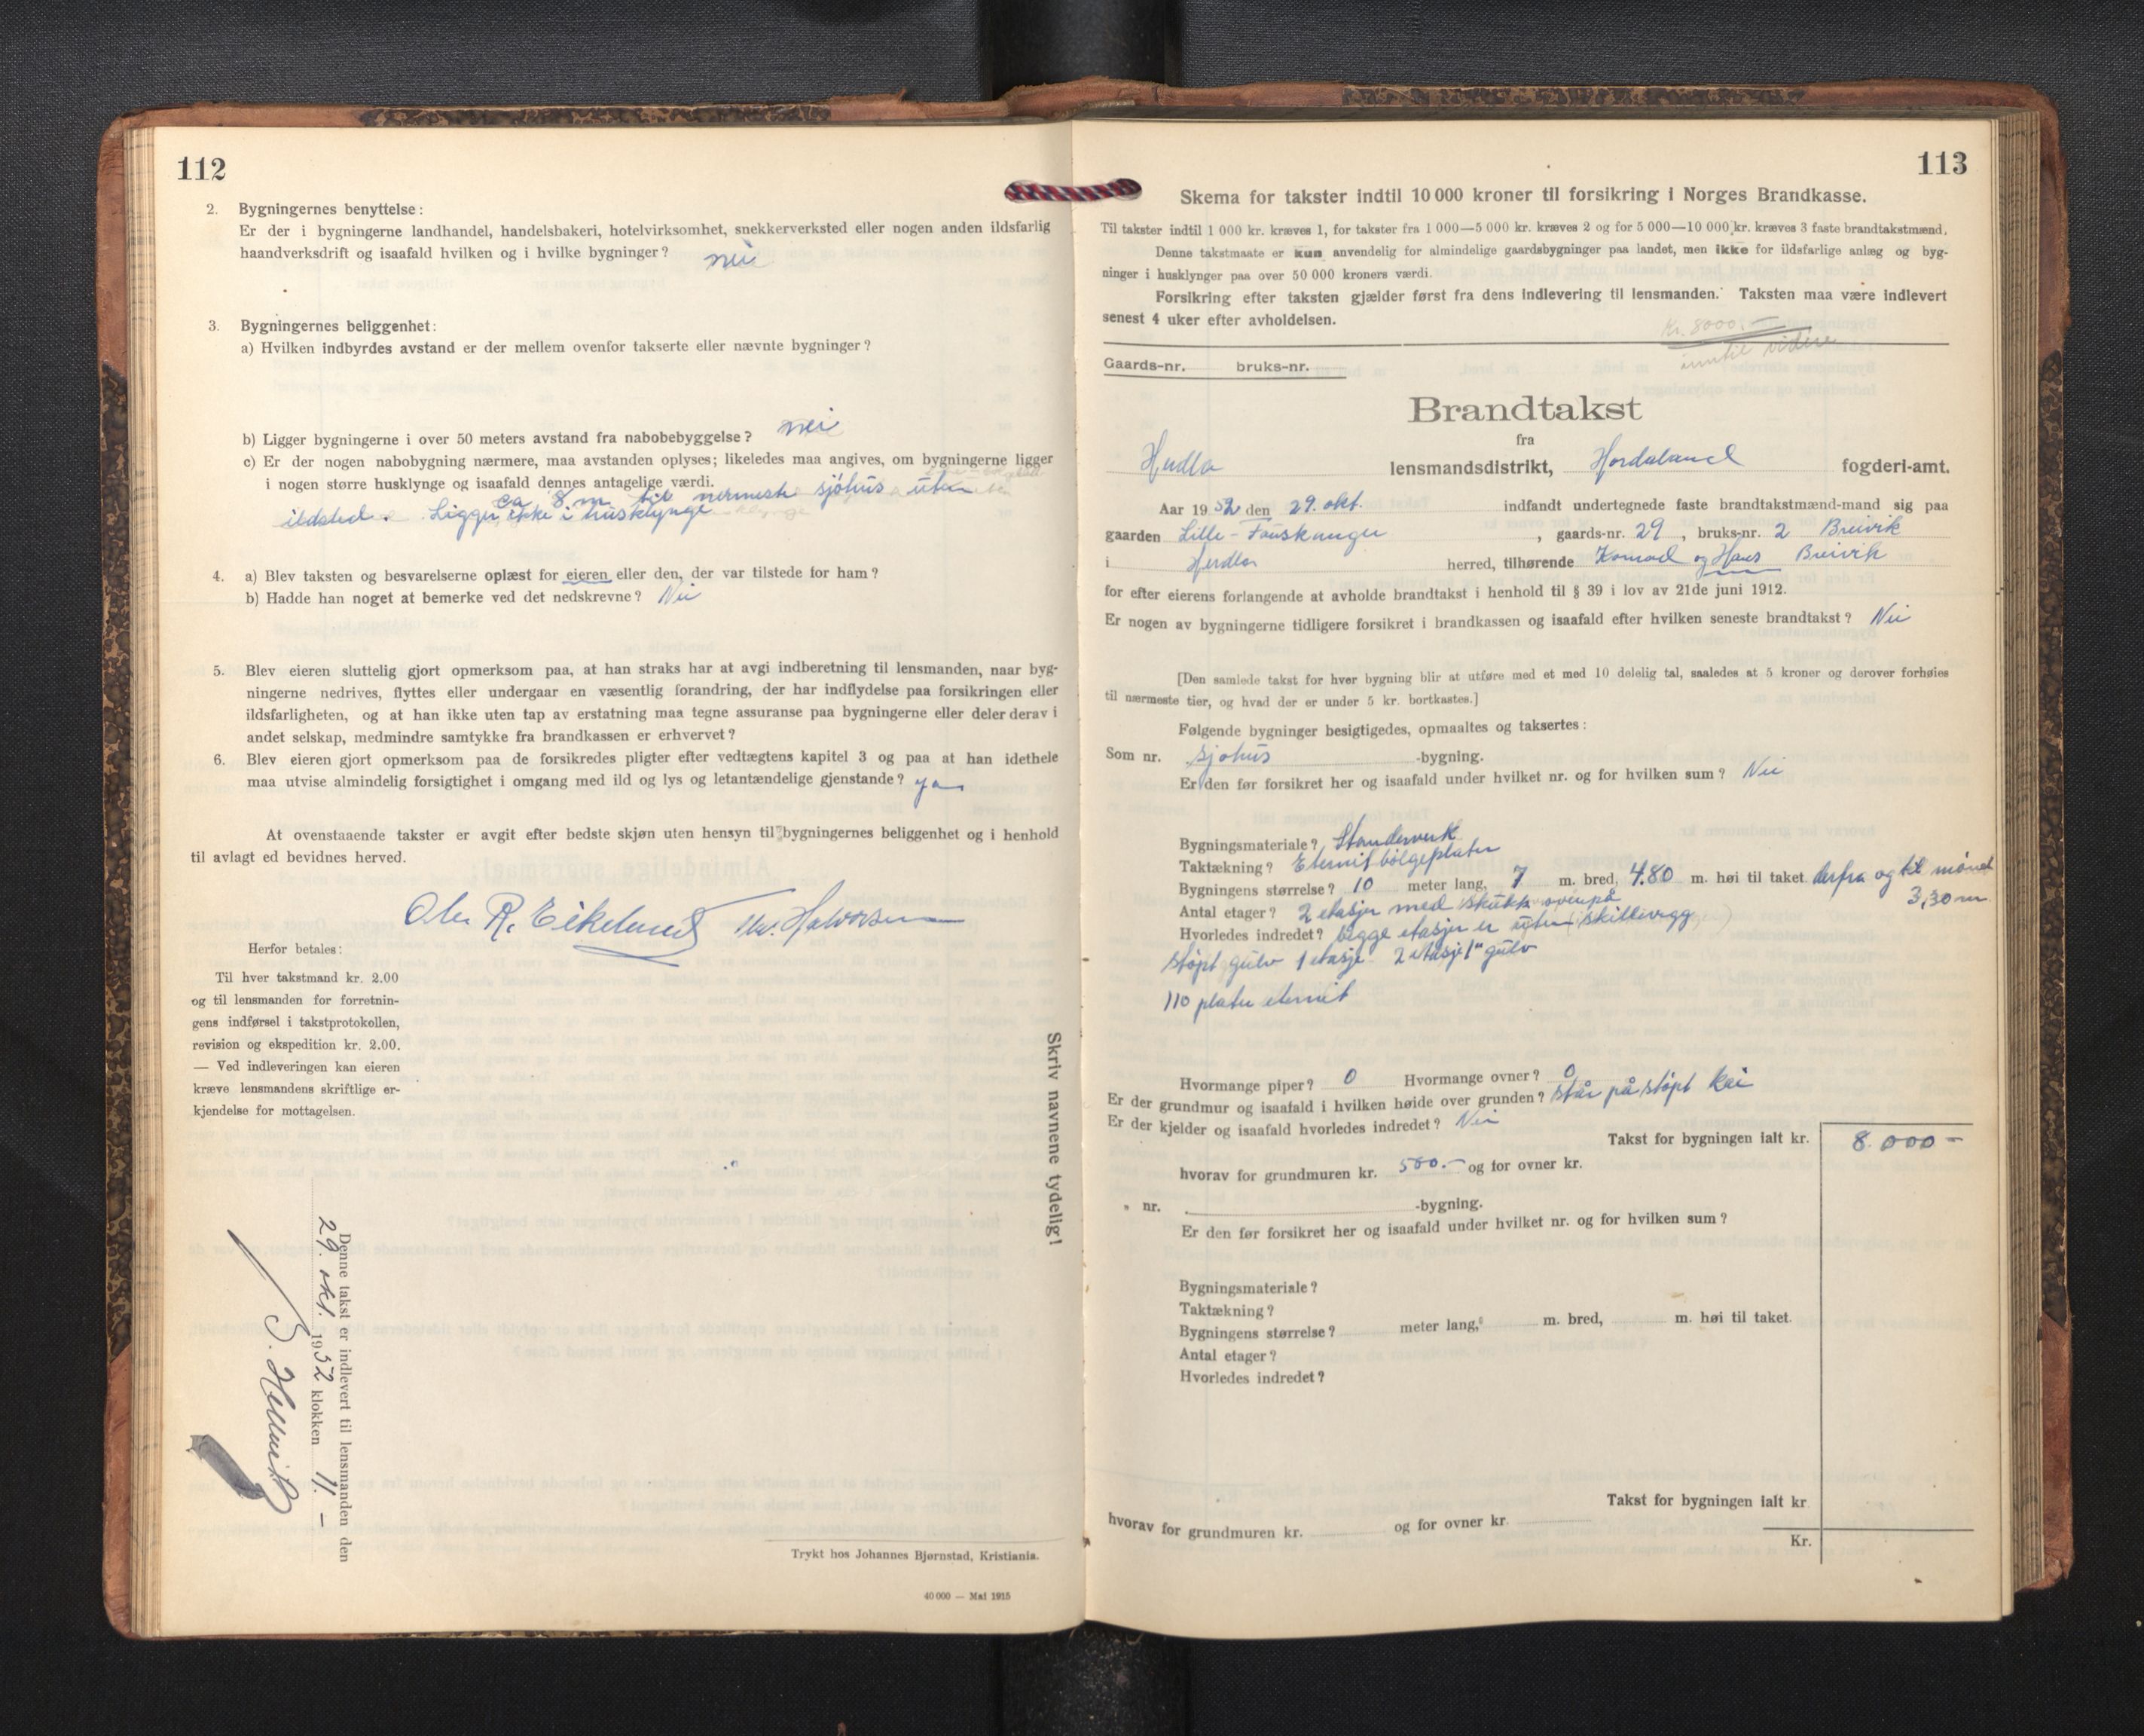 112
2. Bygningernes benyttelse:
Er der i bygningerne landhandel, handelsbakeri, hotelvirksomhet, snekkerverksted eller nogen anden ildsfarlig
haandverksdrift og isaafald hvilken og i hvilke bygninger? nei
3. Bygningernes beliggenhet:
a) Hvilken indbyrdes avstand er der mellem ovenfor takserte eller nævnte bygninger?
b) Ligger bygningerne i over 50 meters avstand fra nabobebyggelse? nei
c) Er der nogen nabobygning nærmere, maa avstanden oplyses; likeledes maa angives, om bygningerne ligger
i nogen større husklynge og isaafald dennes antagelige værdi.
ca 8 m til nermeste sjøhus uten
ildsted. Ligger ikke i husklynge
4. a) Blev taksten og besvarelserne oplæst for eieren eller den, der var tilstede for ham?
b) Hadde han noget at bemerke ved det nedskrevne? Nei
5. Blev eieren sluttelig gjort opmerksom paa, at han straks har at avgi indberetning til lensmanden, naar byg-
ningerne nedrives, flyttes eller undergaar en væsentlig forandring, der har indflydelse paa forsikringen eller
ildsfarligheten, og at han ikke uten tap av erstatning maa tegne assuranse paa bygningerne eller deler derav i
andet selskap, medmindre samtykke fra brandkassen er erhvervet?
6. Blev eieren gjort opmerksom paa de forsikredes pligter efter vedtægtens kapitel 3 og paa at han idethele
maa utvise almindelig forsigtighet i omgang med ild og lys og letantændelige gjenstande? ja
At ovenstaaende takster er avgit efter bedste skjøn uten hensyn til bygningernes beliggenhet og i henhold
til avlagt ed bevidnes herved.
Ole R. Eikeland Halvorsen
Herfor betales:
Til hver takstmand kr. 2.00
og til lensmanden for forretnin-
gens indførsel i takstprotokollen,
revision og ekspedition kr. 2.00.
— Ved indleveringen kan eieren
kræve lensmandens skriftlige er-
kjendelse for mottagelsen.
Skriv navnene tydelig!
Denne takst er indlevert til lensmanden den
29. okt. 1952 klokken 11.-
Trykt hos Johannes Bjørnstad, Kristiania.
40 000 — Mai 1915
113
Skema for takster indtil 10 000 kroner til forsikring i Norges Brandkasse.
Til takster indtil 1 000 kr. kræves 1, for takster fra 1 000—5 000 kr. kræves 2 og for 5 000—10 000 kr. kræves 3 faste brandtakstmænd.
Denne takstmaate er kun anvendelig for almindelige gaardsbygninger paa landet, men ikke for ildsfarlige anlæg og byg-
ninger i husklynger paa over 50 000 kroners værdi.
Forsikring efter taksten gjælder først fra dens indlevering til lensmanden. Taksten maa være indlevert
senest 4 uker efter avholdelsen.
Kr. 8000.-
inntil videre
Gaards-nr. bruks-nr.
Brandtakst
fra
Herdla lensmandsdistrikt, Hordaland fogderi-amt.
Aar 1952 den 29. okt. indfandt undertegnede faste brandtakstmænd-mand sig paa
gaarden Lille-Fauskanger, gaards-nr. 29, bruks-nr. 2 Breivik
i Herdla herred, tilhørende Konrad og Hans Breivik
for efter eierens forlangende at avholde brandtakst i henhold til § 39 i lov av 21de juni 1912.
Er nogen av bygningerne tidligere forsikret i brandkassen og isaafald efter hvilken seneste brandtakst? Nei
[Den samlede takst for hver bygning blir at utføre med et med 10 delelig tal, saaledes at 5 kroner og derover forhøies
til nærmeste tier, og hvad der er under 5 kr. bortkastes.]
Følgende bygninger besigtigedes, opmaaltes og taksertes:
Som nr. sjøhus -bygning.
Er den før forsikret her og isaafald under hvilket nr. og for hvilken sum? Nei
Bygningsmateriale? Standerverk
Taktækning? Eternit bølgeplater
Bygningens størrelse? 10 meter lang, 7 m. bred, 4.80 m. høi til taket derfra og til mønet
3,30 m
Antal etager? 2 etasjer med skukk ovenpå
Hvorledes indredet? begge etasjer er uten skillevegg
støpt gulv 1 etasje 2 etasje 1" gulv
110 plater eternit
Hvormange piper? 0 Hvormange ovner? 0
Er der grundmur og isaafald i hvilken høide over grunden? står på støpt kai
Er der kjelder og isaafald hvorledes indredet? Nei
Takst for bygningen ialt kr. 8.000-
hvorav for grundmuren kr. 500.- og for ovner kr.
" nr. -bygning.
Er den før forsikret her og isaafald under hvilket nr. og for hvilken sum?
Bygningsmateriale?
Taktækning?
Bygningens størrelse? meter lang, m. bred, m. høi til taket.
Antal etager?
Hvorledes indredet?
Takst for bygningen ialt kr
hvorav for grundmuren kr. og for ovner kr.
Kr.